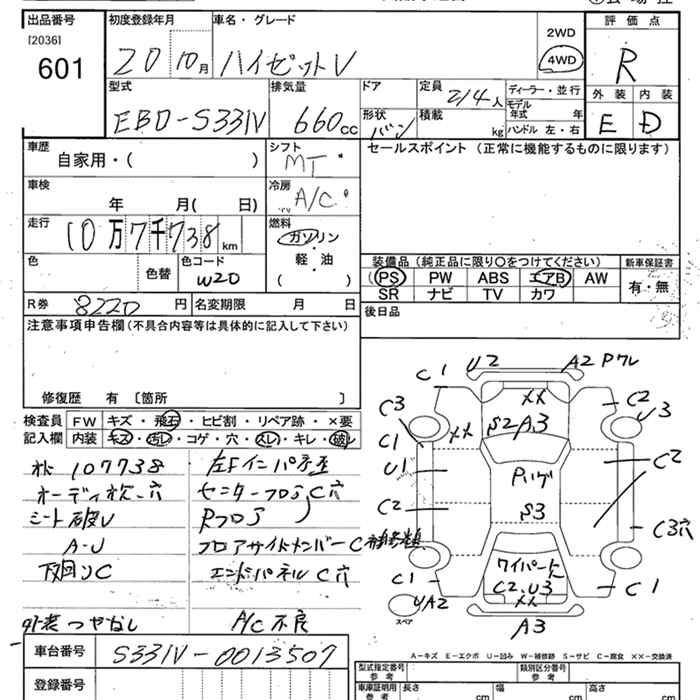 出品番号
[2036]
601
初度登録年月
20 10月
車名・グレード
ハイゼットV
2WD
4WD
評価点
R
外装 内装
E D
型式
EBD-S331V
排気量
660cc
ドア
形状
バン
定員
2/4人
積載
kg
ディーラー・並行
モデル年式 年
ハンドル 左・右
車歴
自家用・( )
シフト
MT
セールスポイント (正常に機能するものに限ります)
車検
年 月( 日)
冷房
A/C
走行
10万7千738km
燃料
ガソリン
軽・油
( )
色
色替
色コード
W20
装備品 (純正品に限り○をつけてください)
新車保証書
PS PW ABS エアB AW
有・無
SR ナビ TV カワ
R券 8220円
名変期限 月 日
後日品
注意事項申告欄 (不具合内容等は具体的に記入して下さい)
修復歴 有 〔箇所 〕
検査員記入欄
FW キズ・飛石・ヒビ割・リペア跡・×要
内装 キズ・汚レ・コゲ・穴・スレ・キレ・破レ
107738
左Fインパネ歪
オーディオ欠・穴
センターフロアC穴
シート破レ
Rフロア
フロアサイドメンバーC
下廻りC
エンドパネルC穴
外装つやなし
A/C不良
C1
U2
A2 Pワレ
C3
××
××
S2A3
C2
U3
C1
U1
Pハゲ
C2
C2
S3
C3穴
ワイパー
C2.U3
××
C1
C1
UA2
スペア
A3
A-キズ E-エクボ U-凹み W-補修跡 S-サビ C-腐食 ××-交換済
車台番号
S331V-0013507
登録番号
型式指定番号
参考
類別区分番号
参考
車庫証明用
参考
長さ cm
幅 cm
高さ cm